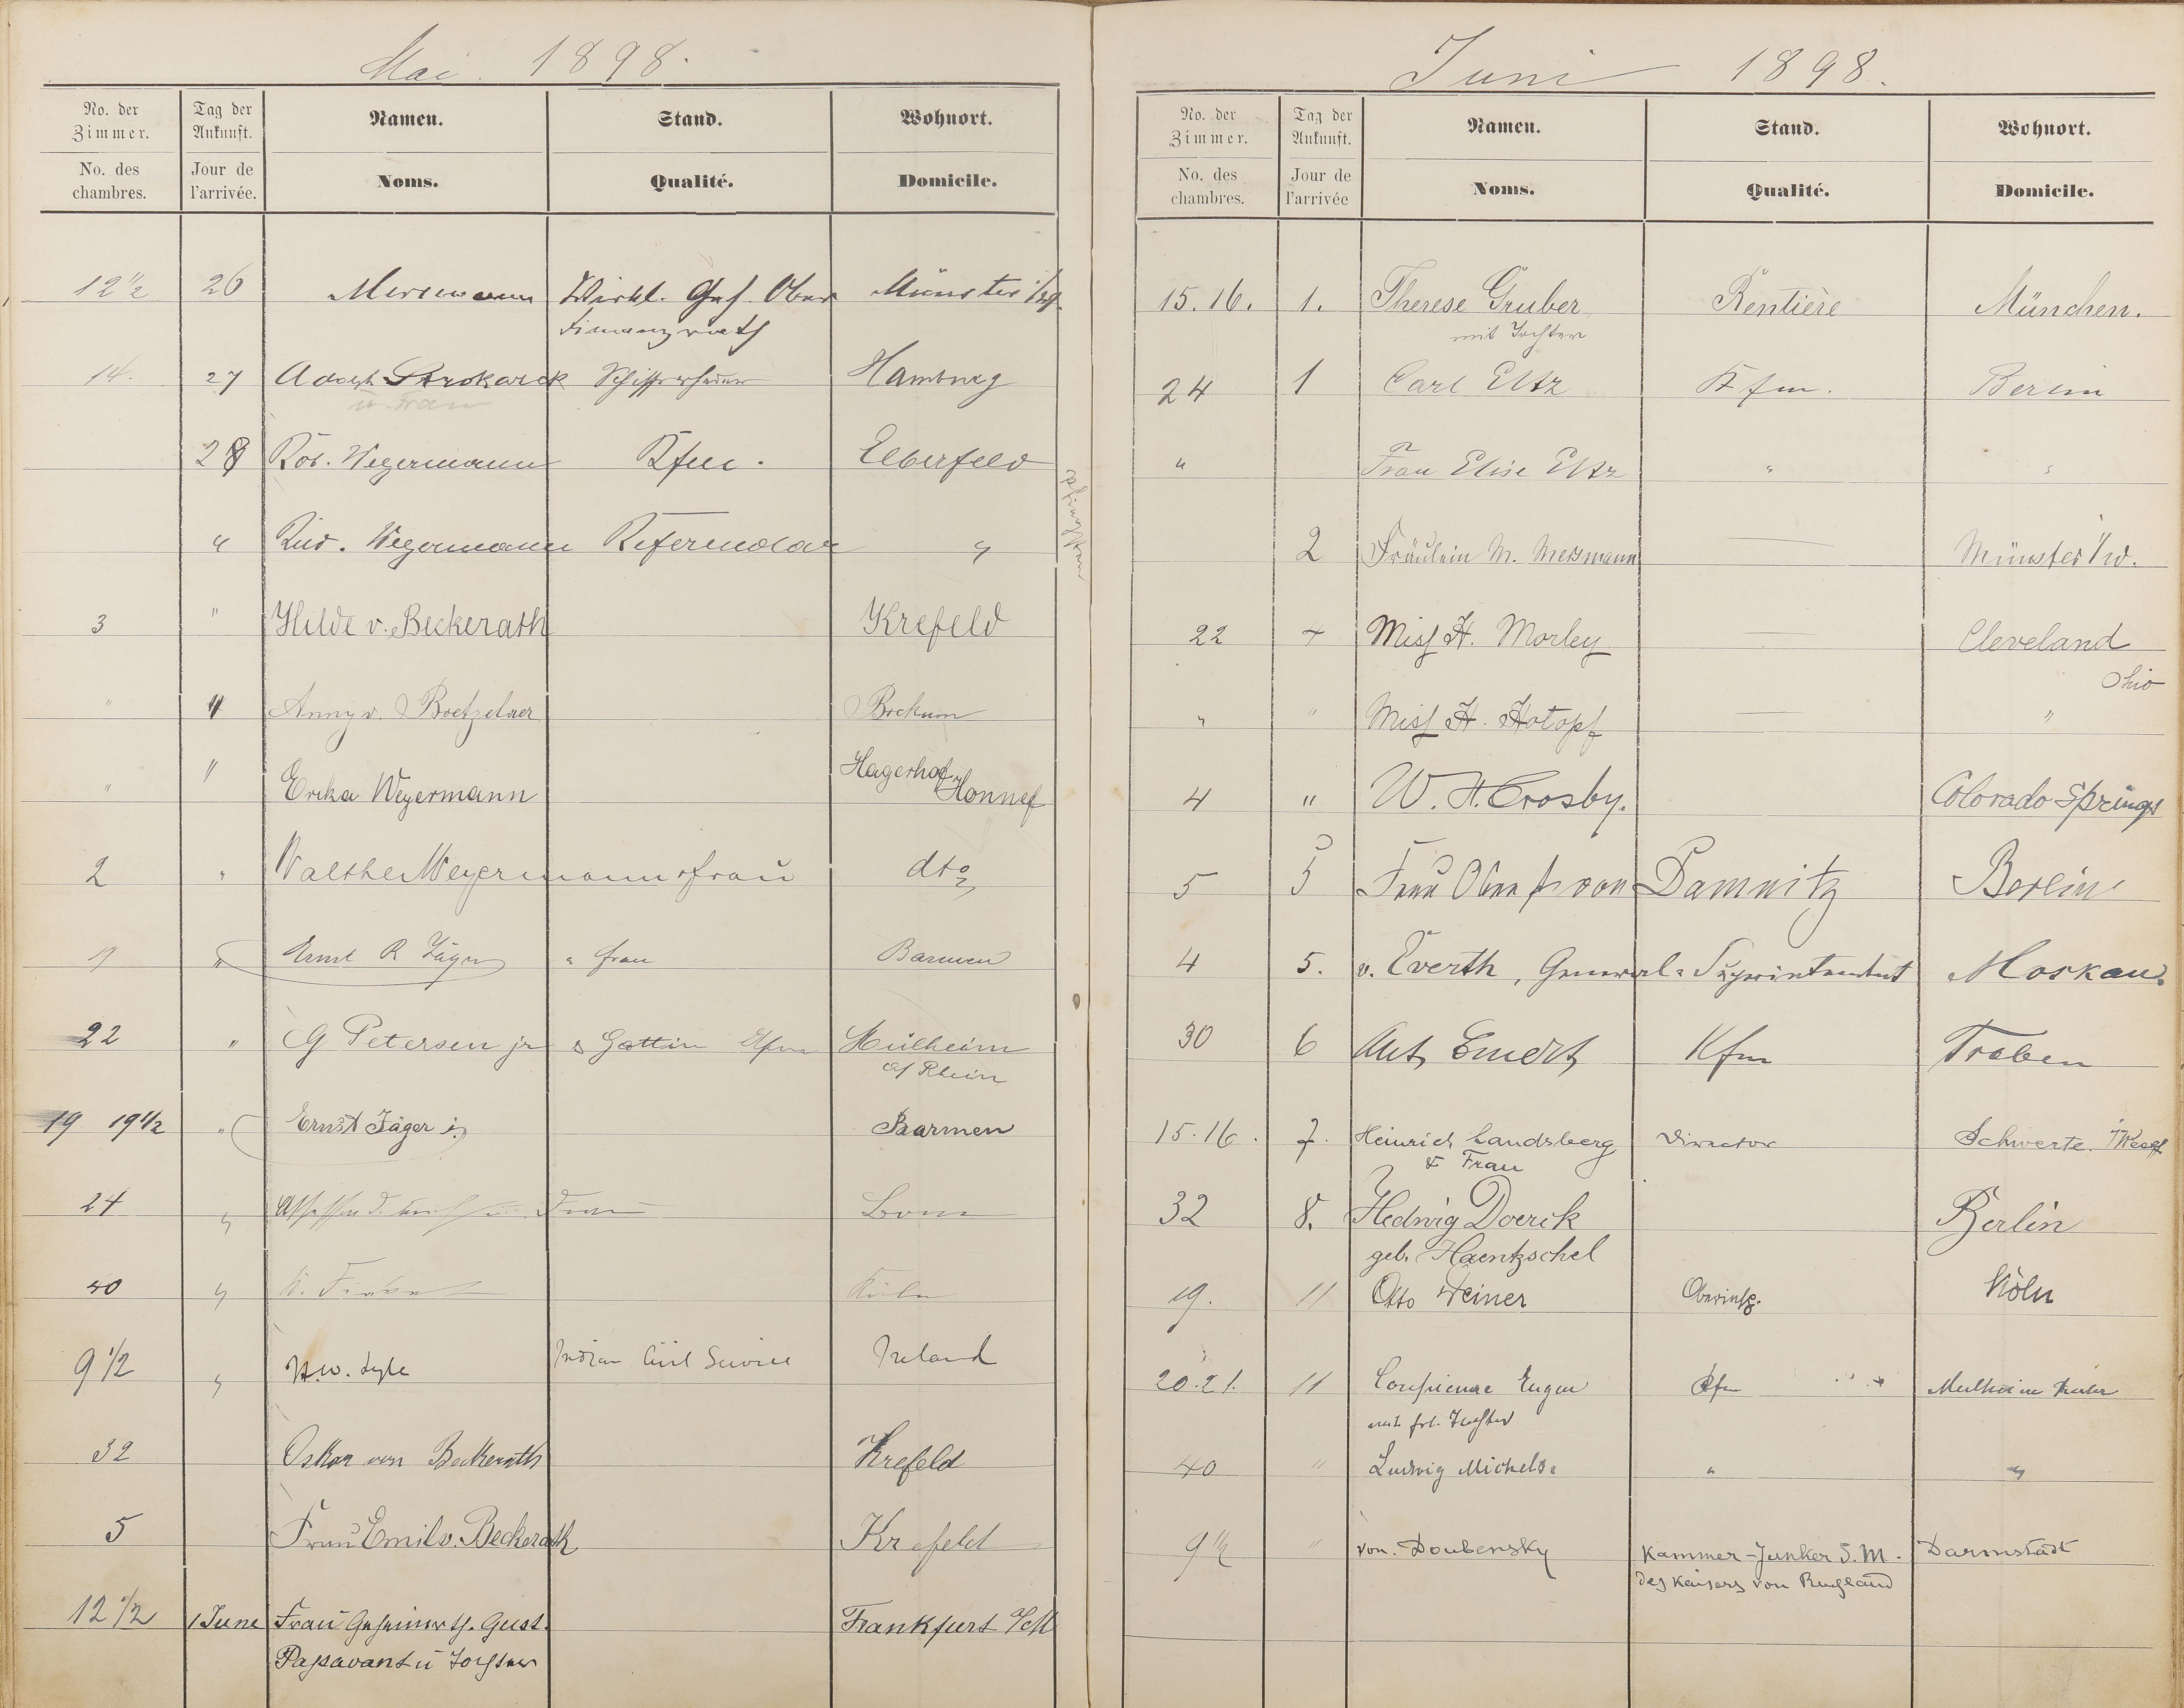 Mai. 1898.
No. der Zimmer. Tag der Ankunft. Namen. Stand. Wohnort.
No. des chambres. Jour de l'arrivée. Noms. Qualité. Domicile.
12 1/2 26 Mersmann Wirkl. Geh. Ober Münster i/W
Finanzrath
14. 27 Adolph Hamburg
u. Frau
28 Rob. Weyermann Kfm. Elberfeld
" Rud. Weyermann Referendar "
Pfingsten
3 " Hilde v. Beckerath Krefeld
" " Anny v. Boetzelaer Bockum
" " Erika Weyermann Hagerhof Honnef
2 " Walther Weyermann & frau dto
19 " Ernst R Jäger & frau Barmen
22 " G Petersen jr & Gattin Kfm Mülheim
a/ Rhein
19 19 1/2 " Ernst Jäger j. Barmen
24 " Assessor Frau Bonn
40 " Köln
9 1/2 " H.W. Lyle Indian Civil Service Ireland
32 Oskar von Beckerath Krefeld
5 Frau Emil v. Beckerath Krefeld
12 1/2 1 June Frau Geheimrth. Gust. Frankfurt a/M
Passavant u Tochter
Juni 1898.
No. der Zimmer. Tag der Ankunft. Namen. Stand. Wohnort.
No. des chambres. Jour de l'arrivée Noms. Qualité. Domicile.
15.16. 1. Therese Gruber Rentière München.
mit Tochter
24 1 Carl Eltz Kfm. Berlin
" Frau Elise Eltz " "
2 Fräulein M. Mersmann — Münster i/W.
22 4 Miss H. Morley — Cleveland
Ohio
" " Miss H. Hotopf — "
4 " W. H. Crosby. Colorado Springs
5 5 Frau Oberst von Damnitz Berlin
4 5. v. Everth, General-Superintendent Moskau.
30 6 Kfm Traben
15.16. 7. Heinrich Landsberg Director Schwerte i/Westf
& Frau
32 8. Hedwig Doerik Berlin
geb. Haentzschel
19. 11 Otto Weiner Oberinsp. Köln
20.21. 11 Eugen Kfm Mülheim Ruhr
mit frl. Tochter
40 " Ludwig Michels. " "
9 1/2 " von. Doubensky Kammer-Junker S. M. Darmstadt
des Kaisers von Russland